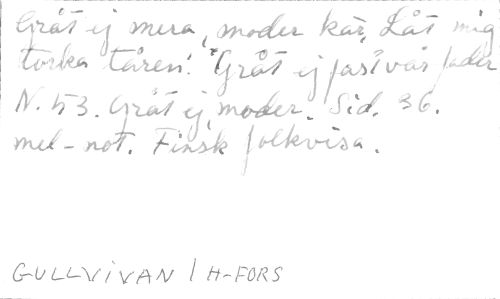 Gråt ej mera, moder kär, Låt mig
torka tåren! Gråt ej fast vår fader
N. 53. Gråt ej, moder. Sid. 36.
mel-not. Finsk folkvisa.
GULLVIVAN / H-FORS